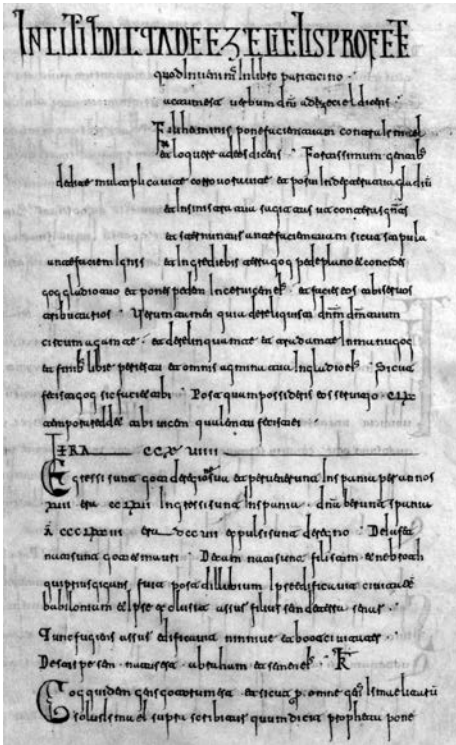 INCIPIT DICTA DE EZECIELIS PROFETE
quod inuenimꝰ in libro pariticino ·
uctum est uerbum dnī ad ezeciel dicens ·
Fili hominis pone faciem tuam contra ismael
et loquere ad eos dicens · Fortissimum gentib͛
dedi te multiplicaui te corroboraui te et posui in dextera tua gladiū
et in sinistra tua sagittas ut conteras gn̄es
et sternantur ante faciem tuam sicut stipula
ante faciem ignis et ingredieris terra gog pede plano et concides
gog gladio tuo et pones pedem in ceruice ei͛ · et facies eos tibi seruos
tributarios · Uerum tamen quia dereliquisti dnm̄ dm̄ tuum
circum agam te · et derelinquam te et tradam te in manu gog
et in finib͛ libie peries tu et omnia agmina tua in gladio ei͛ · Sicut
fecisti gog sic faciet tibi · Post quam possideris eos seruitio clxx
tempora reddet tibi uicem qualem tu fecisti ·
ERA CCCX UIIII
Egressi sunt goti de regione sua et peruenerunt in spania per annos
xuii era cclxui ingressi sunt in spania · dnāberunt spania
ā ccclxxxiii era dcc lii expulsi sunt de regno · De iafet
nati sunt goti et mauri · De cam nati sunt filistim et nebroth
qui prius gigans fuit post dillubium ipse edificauit ciuitate
babilonium et ipse coluit assus filius sem de terra senar ·
Tunc fugiens assus edificauit ninnive et boot ciuitates ·
De stirpe sem · natus est · abraham et semen ei͛ ·
Gog quidem gens gotorum est et sicut p̄ omne gēs ismaelitarū
solus ismael supra scribitur quum dicit propheta pone